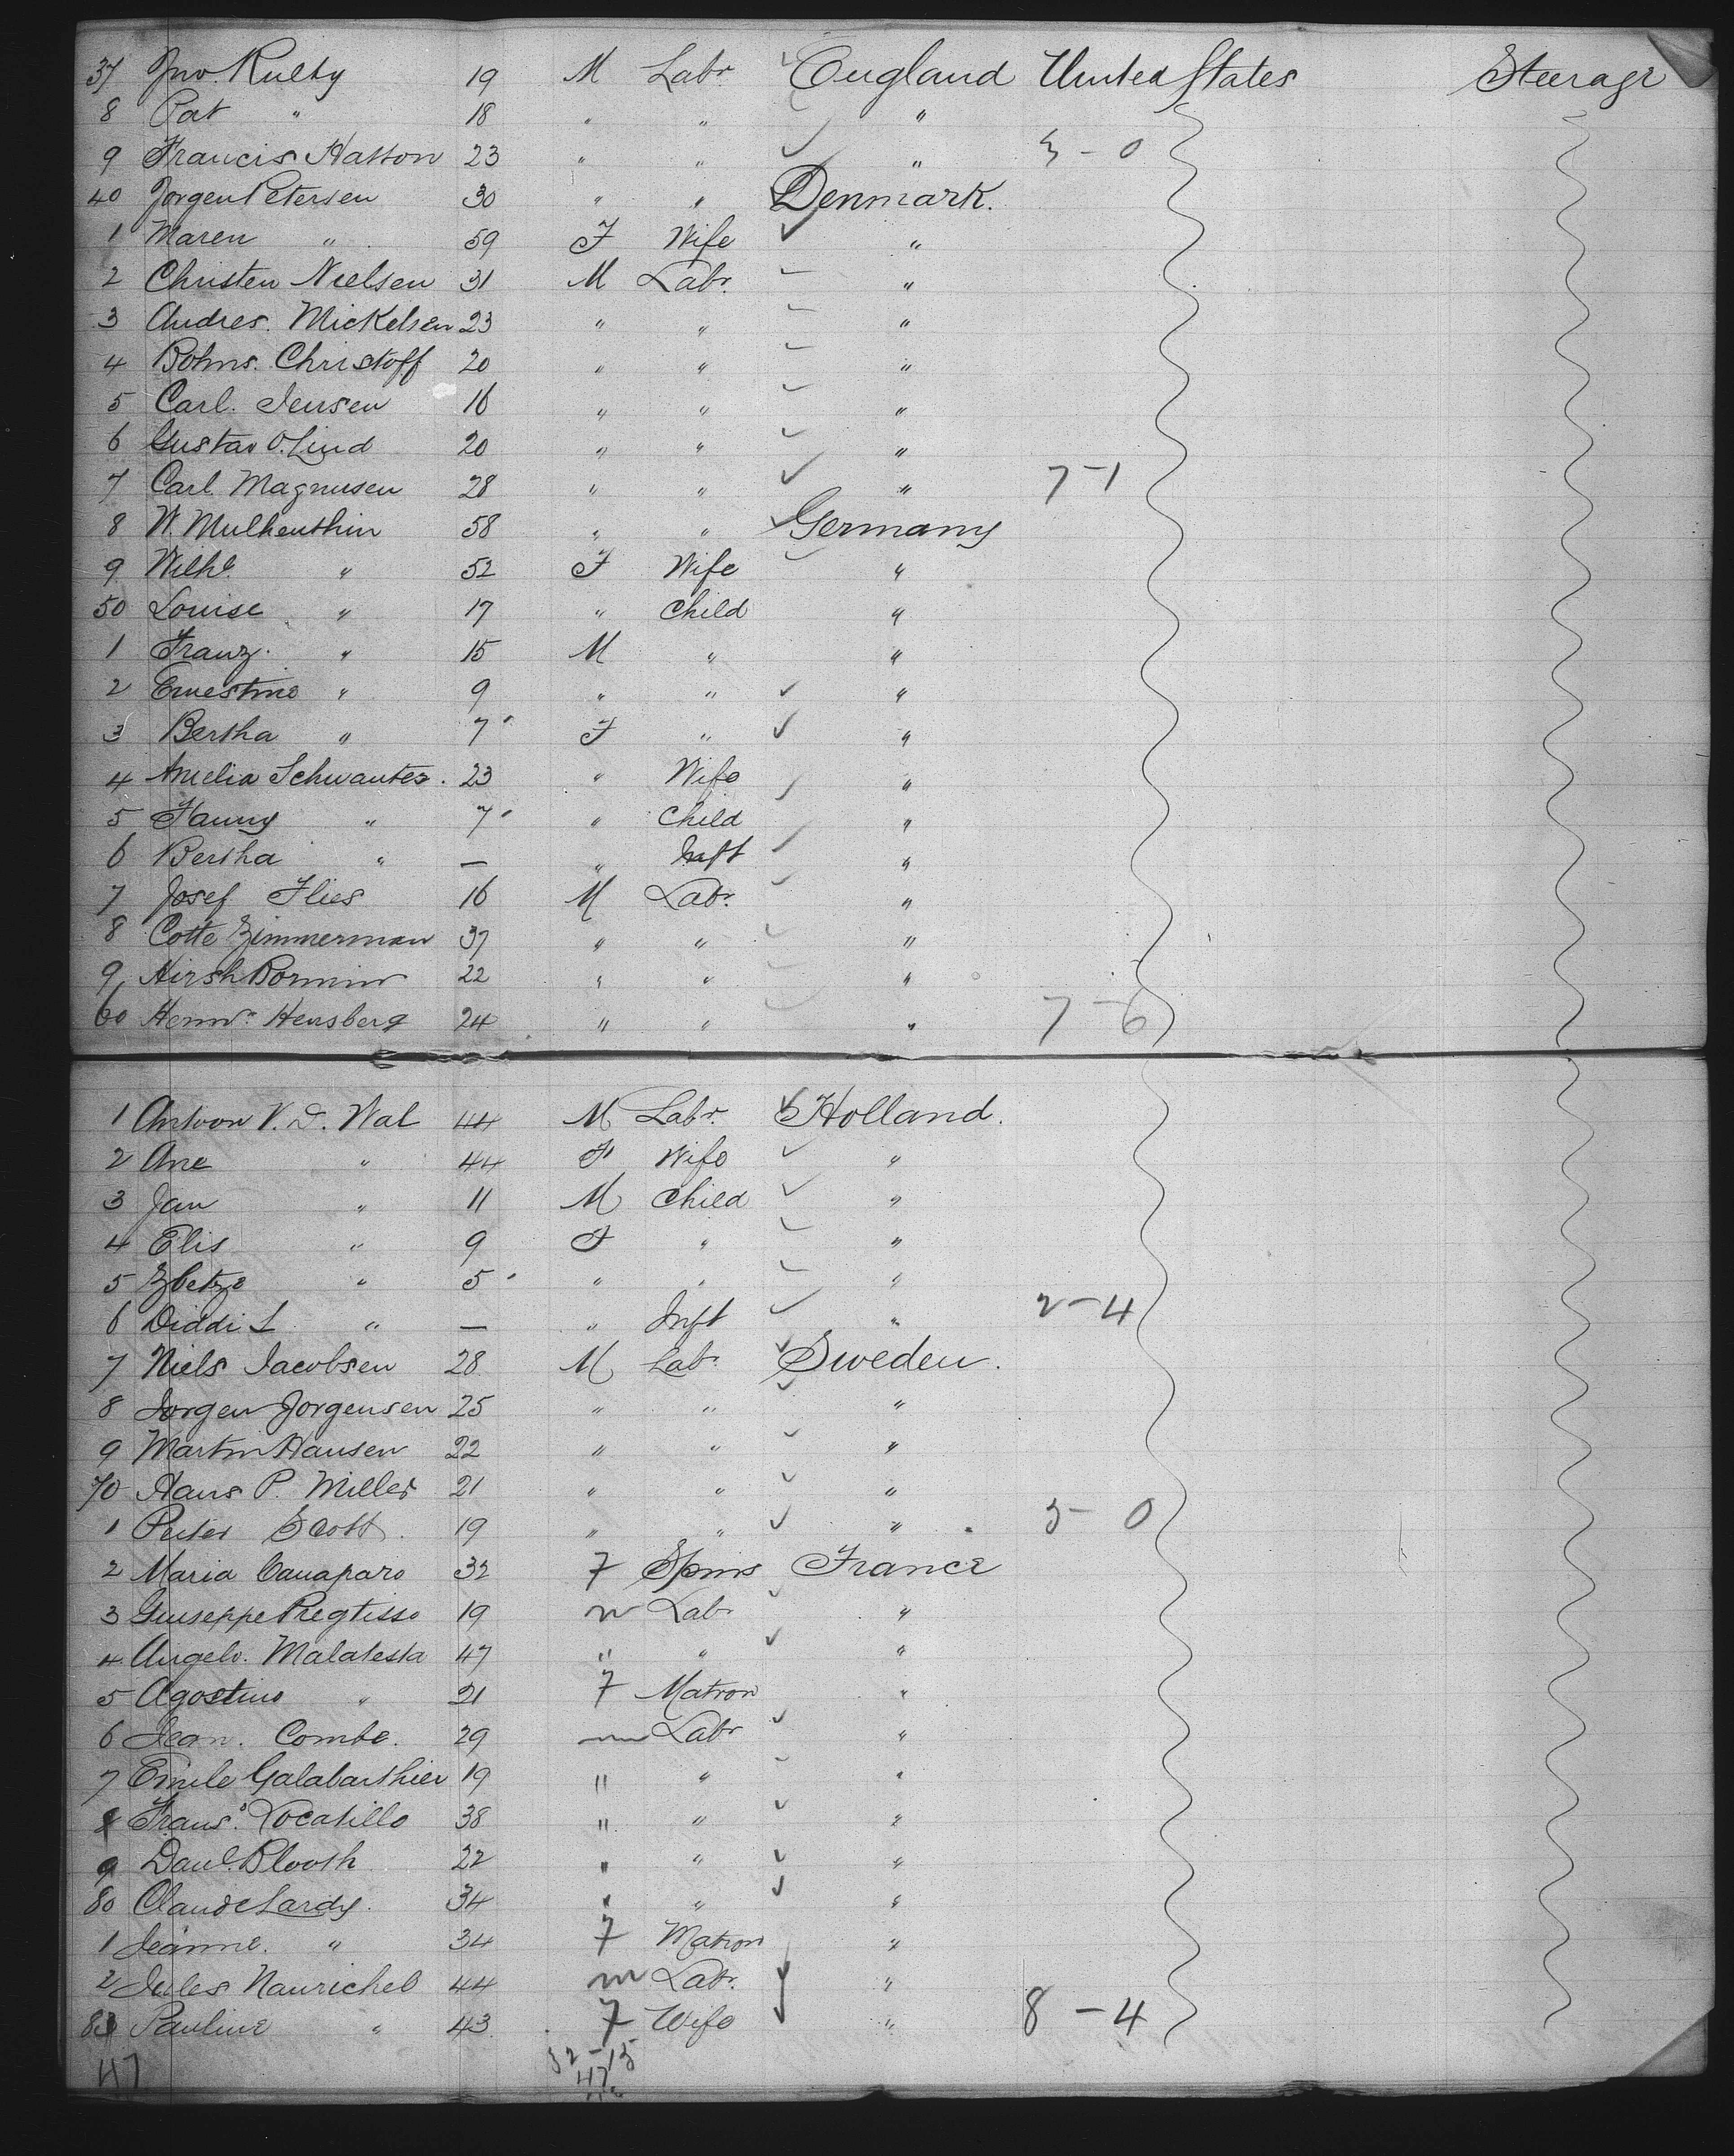 37 Jno. Kulty 19 M Labr. England United States Steerage
8 Pat " 18 " " "
9 Francis Hatton 23 " " " 3 - 0
40 Jorgen Petersen 30 " " Denmark.
1 Maren " 59 F Wife "
2 Christen Nielsen 31 M Labr. "
3 Andres. Mickelsen 23 " " "
4 Bohms. Christoff 20 " " "
5 Carl. Jensen 16 " " "
6 Gustav O. Lind 20 " " "
7 Carl Magnusen 28 " " " 7 - 1
8 W. Mulhenthin 58 " " Germany
9 Wilhe. " 52 F Wife "
50 Louise " 17 " Child "
1 Franz. " 15 M " "
2 Ernestine " 9 " " "
3 Bertha " 7 F " "
4 Amelia Schwantes. 23 " Wife "
5 Fanny " 7 " Child "
6 Bertha " — " Inft "
7 Josef Flies 16 M Labr. "
8 Cotte Zimmerman 37 " " "
9 Hirsh 22 " " "
60 Hensberg 24 " " " 7 - 6
1 Antoon V. D. Wal 44 M Labr. Holland.
2 Ane " 44 F Wife "
3 Jan " 11 M Child "
4 Elis " 9 F " "
5 " 5 " " "
6 Diddi L " — " Inft " 2 - 4
7 Niels Jacobsen 28 M Labr. Sweden.
8 Jorgen Jorgensen 25 " " "
9 Martin Hansen 22 " " "
70 Hans P. Miller 21 " " "
1 Peter Scott. 19 " " " 5 - 0
2 Maria Canaparo 32 F Spins France
3 Giuseppe Pregtisso 19 m Labr "
4 Angelo. Malatesta 47 " " "
5 Agostino " 21 F Matron "
6 Jean. Combe. 29 m Labr "
7 Emile Galabarthier 19 " " "
8 Frans. Locatillo 38 " " "
9 Danl. Blooth 22 " " "
80 Claude Lardy. 34 " " "
1 Jeanne. " 34 F Matron "
2 Jules Naurichel 44 m Labr. "
83 Pauline " 43 F Wife " 8 - 4
32 - 15
47 47